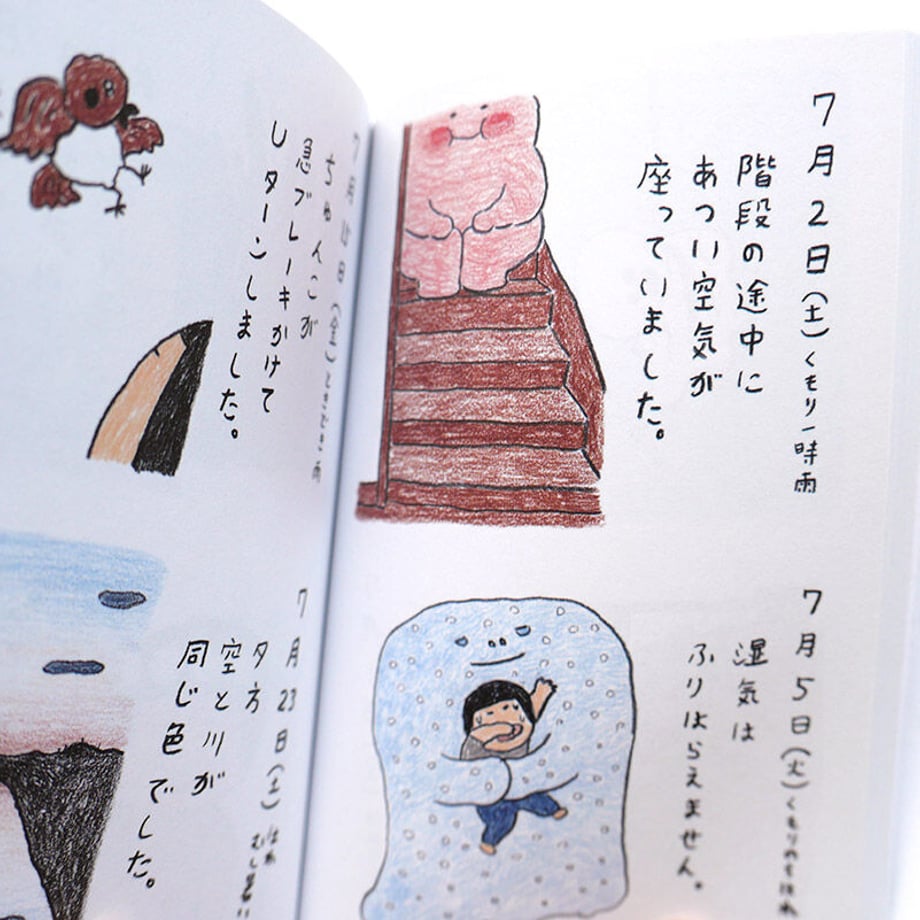 7月2日（土）くもり一時雨
階段の途中に
あつい空気が
座っていました。
7月5日（火）くもりのち晴れ
湿気は
ふりはらえません。
ちゅんこが
急ブレーキかけて
Uターンしました。
7月23日（土）
夕方
空と川が
同じ色でした。